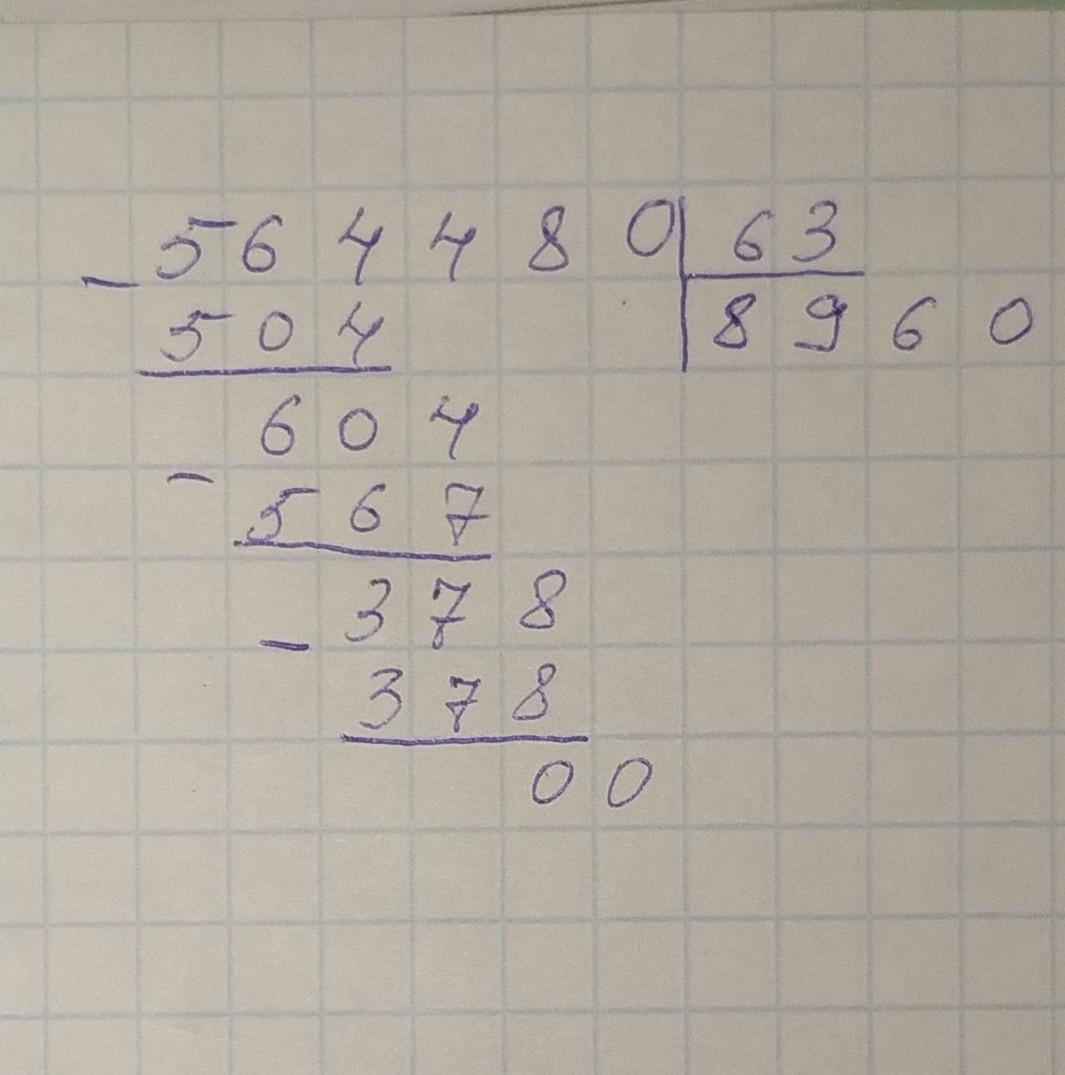 - 564480 | 63
504 | 8960
604
- 567
- 378
378
00